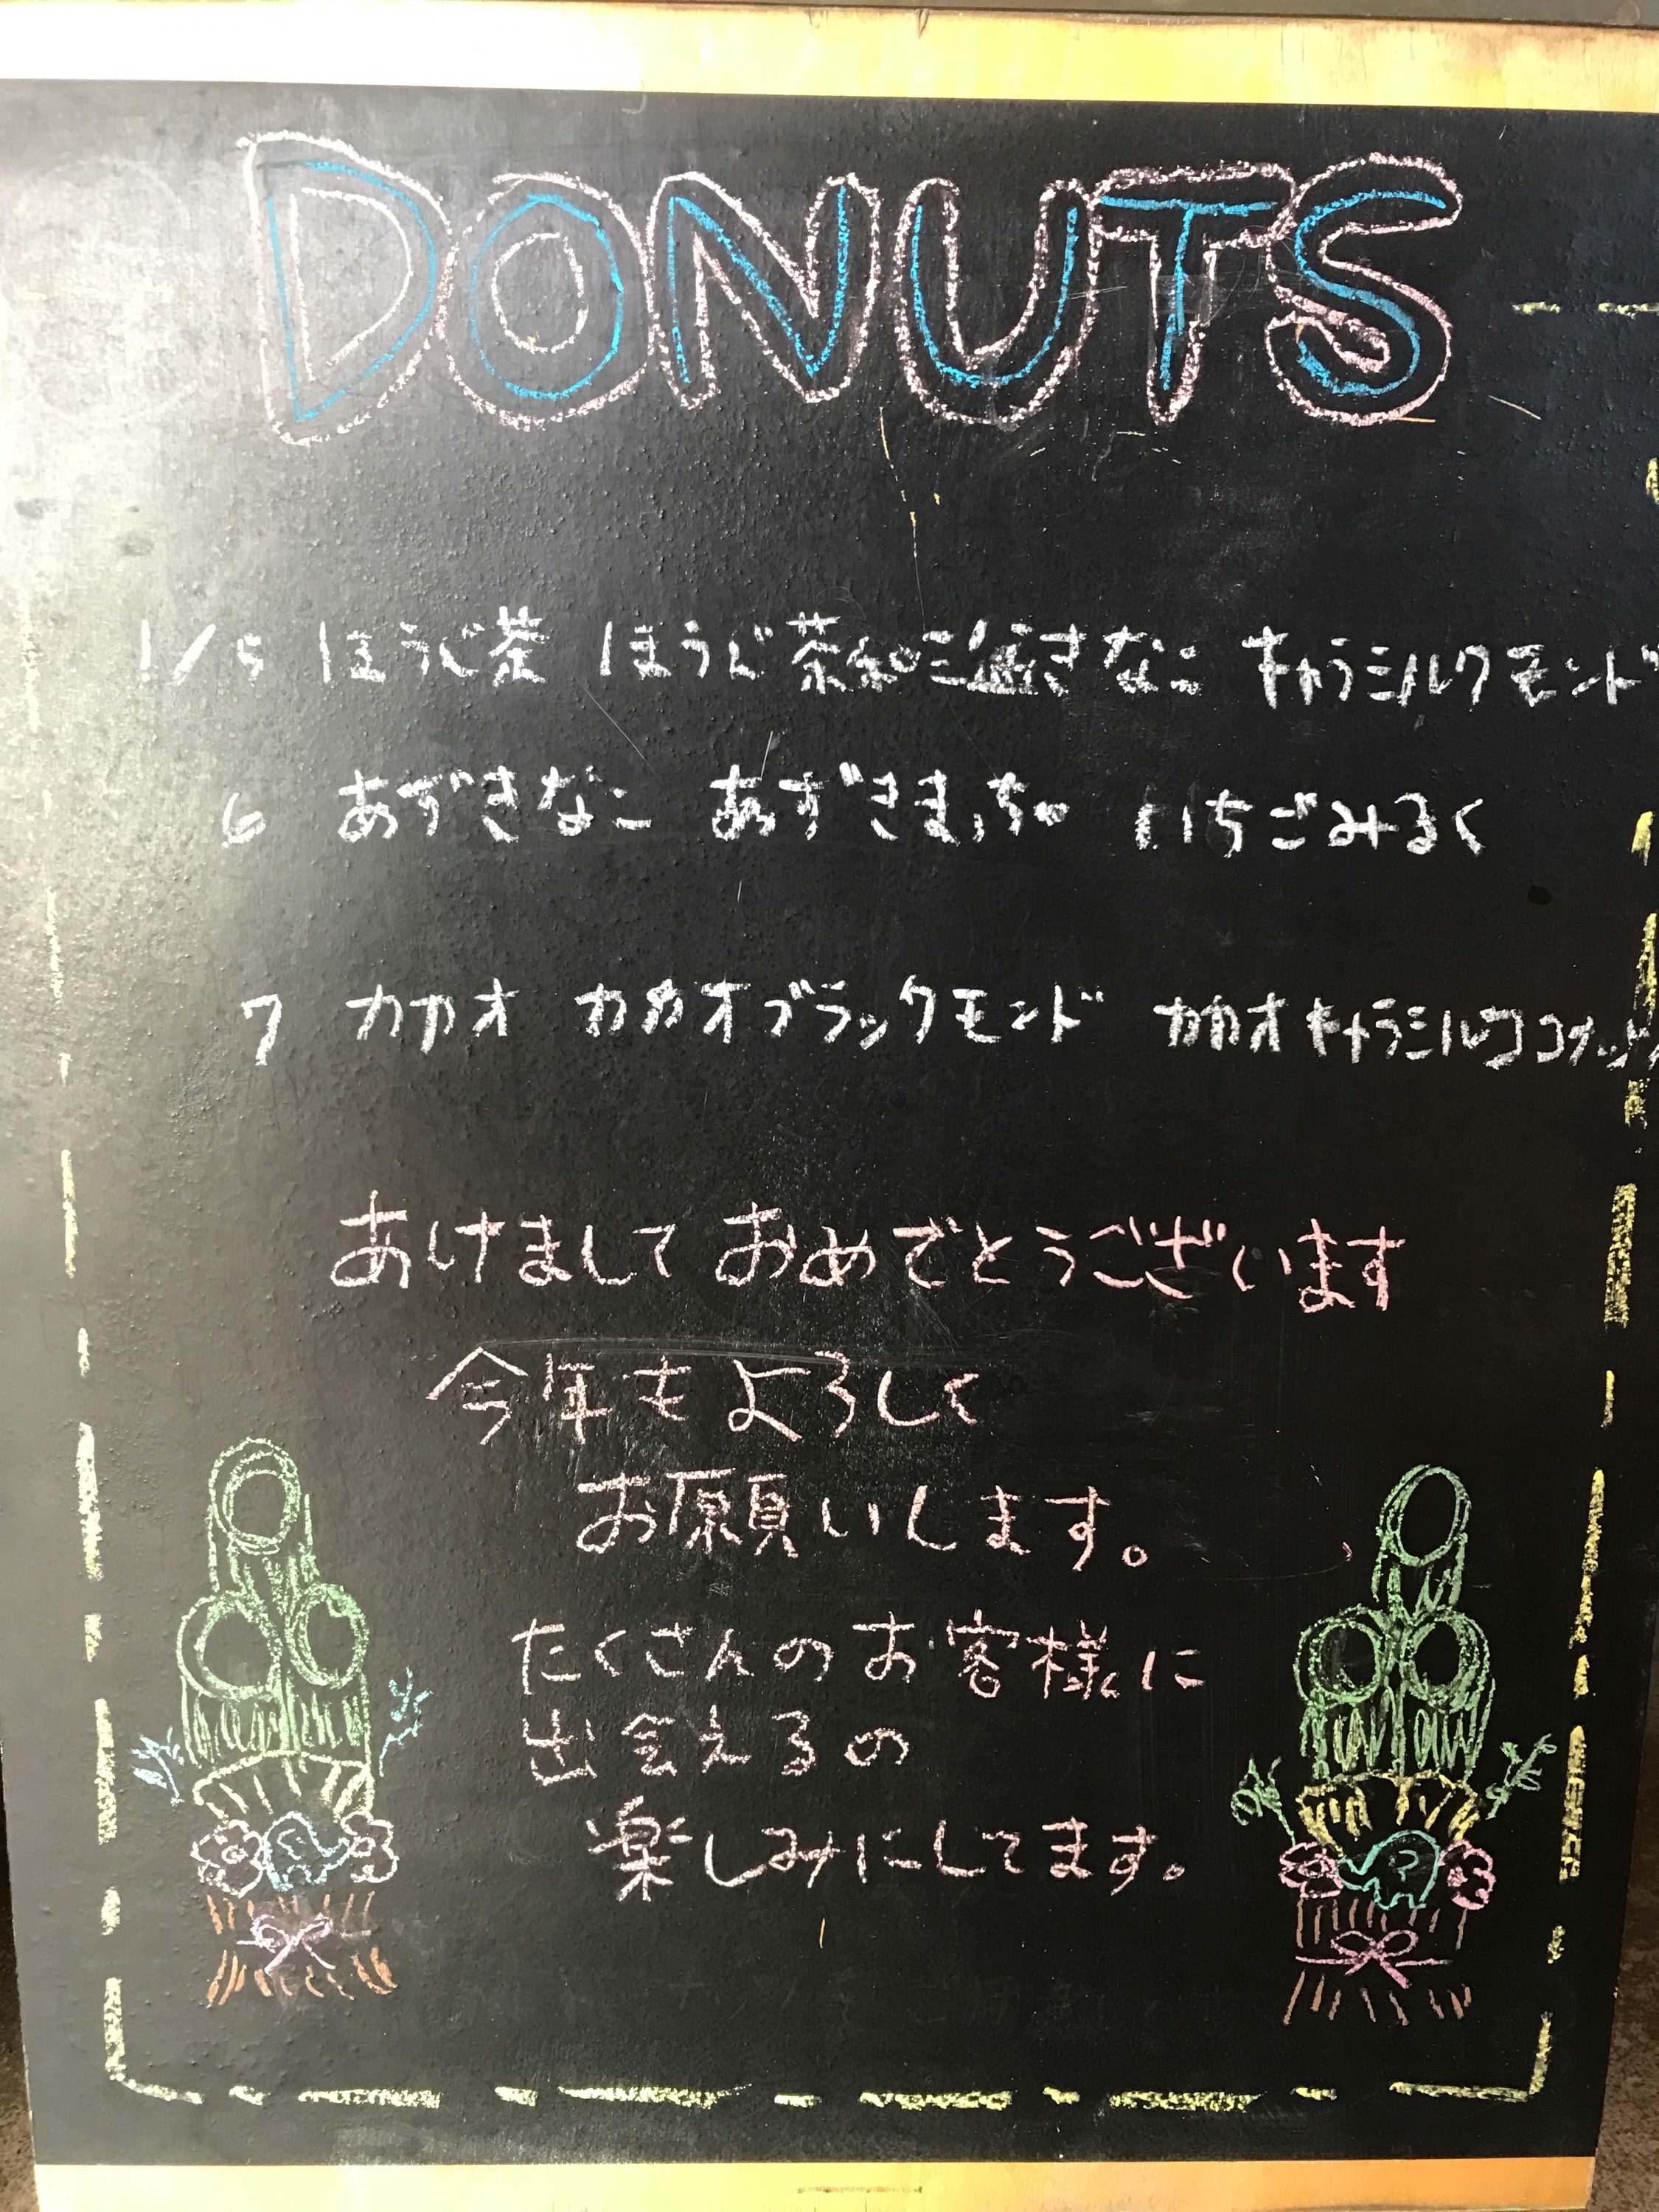 DONUTS
1/5 ほうじ茶 ほうじ茶和三盆きなこ キャラミルクモンド
6 あずきなこ あずきまっちゃ いちごみるく
7 カカオ カカオブラックモンド カカオキャラミルクココナッツ
あけましておめでとうございます
今年もよろしく
お願いします。
たくさんのお客様に
出会えるの
楽しみにしてます。